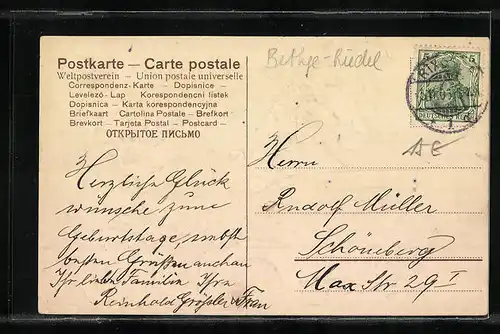 Postkarte — Carte postale
Weltpostverein – Union postale universelle
Correspondenz-Karte – Dopisnice –
Levelező-Lap Korespondencni listek
Dopisnica – Karta korespondencyjna
Briefkaart Cartolina Postale – Brefkort
Brevkort – Tarjeta Postal – Postcard –
ОТКРЫТОЕ ПИСЬМО
Bethge-Riedel
5 5
DEUTSCHES REICH
AE
Herzliche Glück
wünsche zum
Geburtstage, nebst
besten Grüssen auch an
Ihr lieben Familie Ihre
Reinhold Grössler u Frau
Herrn
Rudolf Müller
Schöneberg
Max Str 29 I